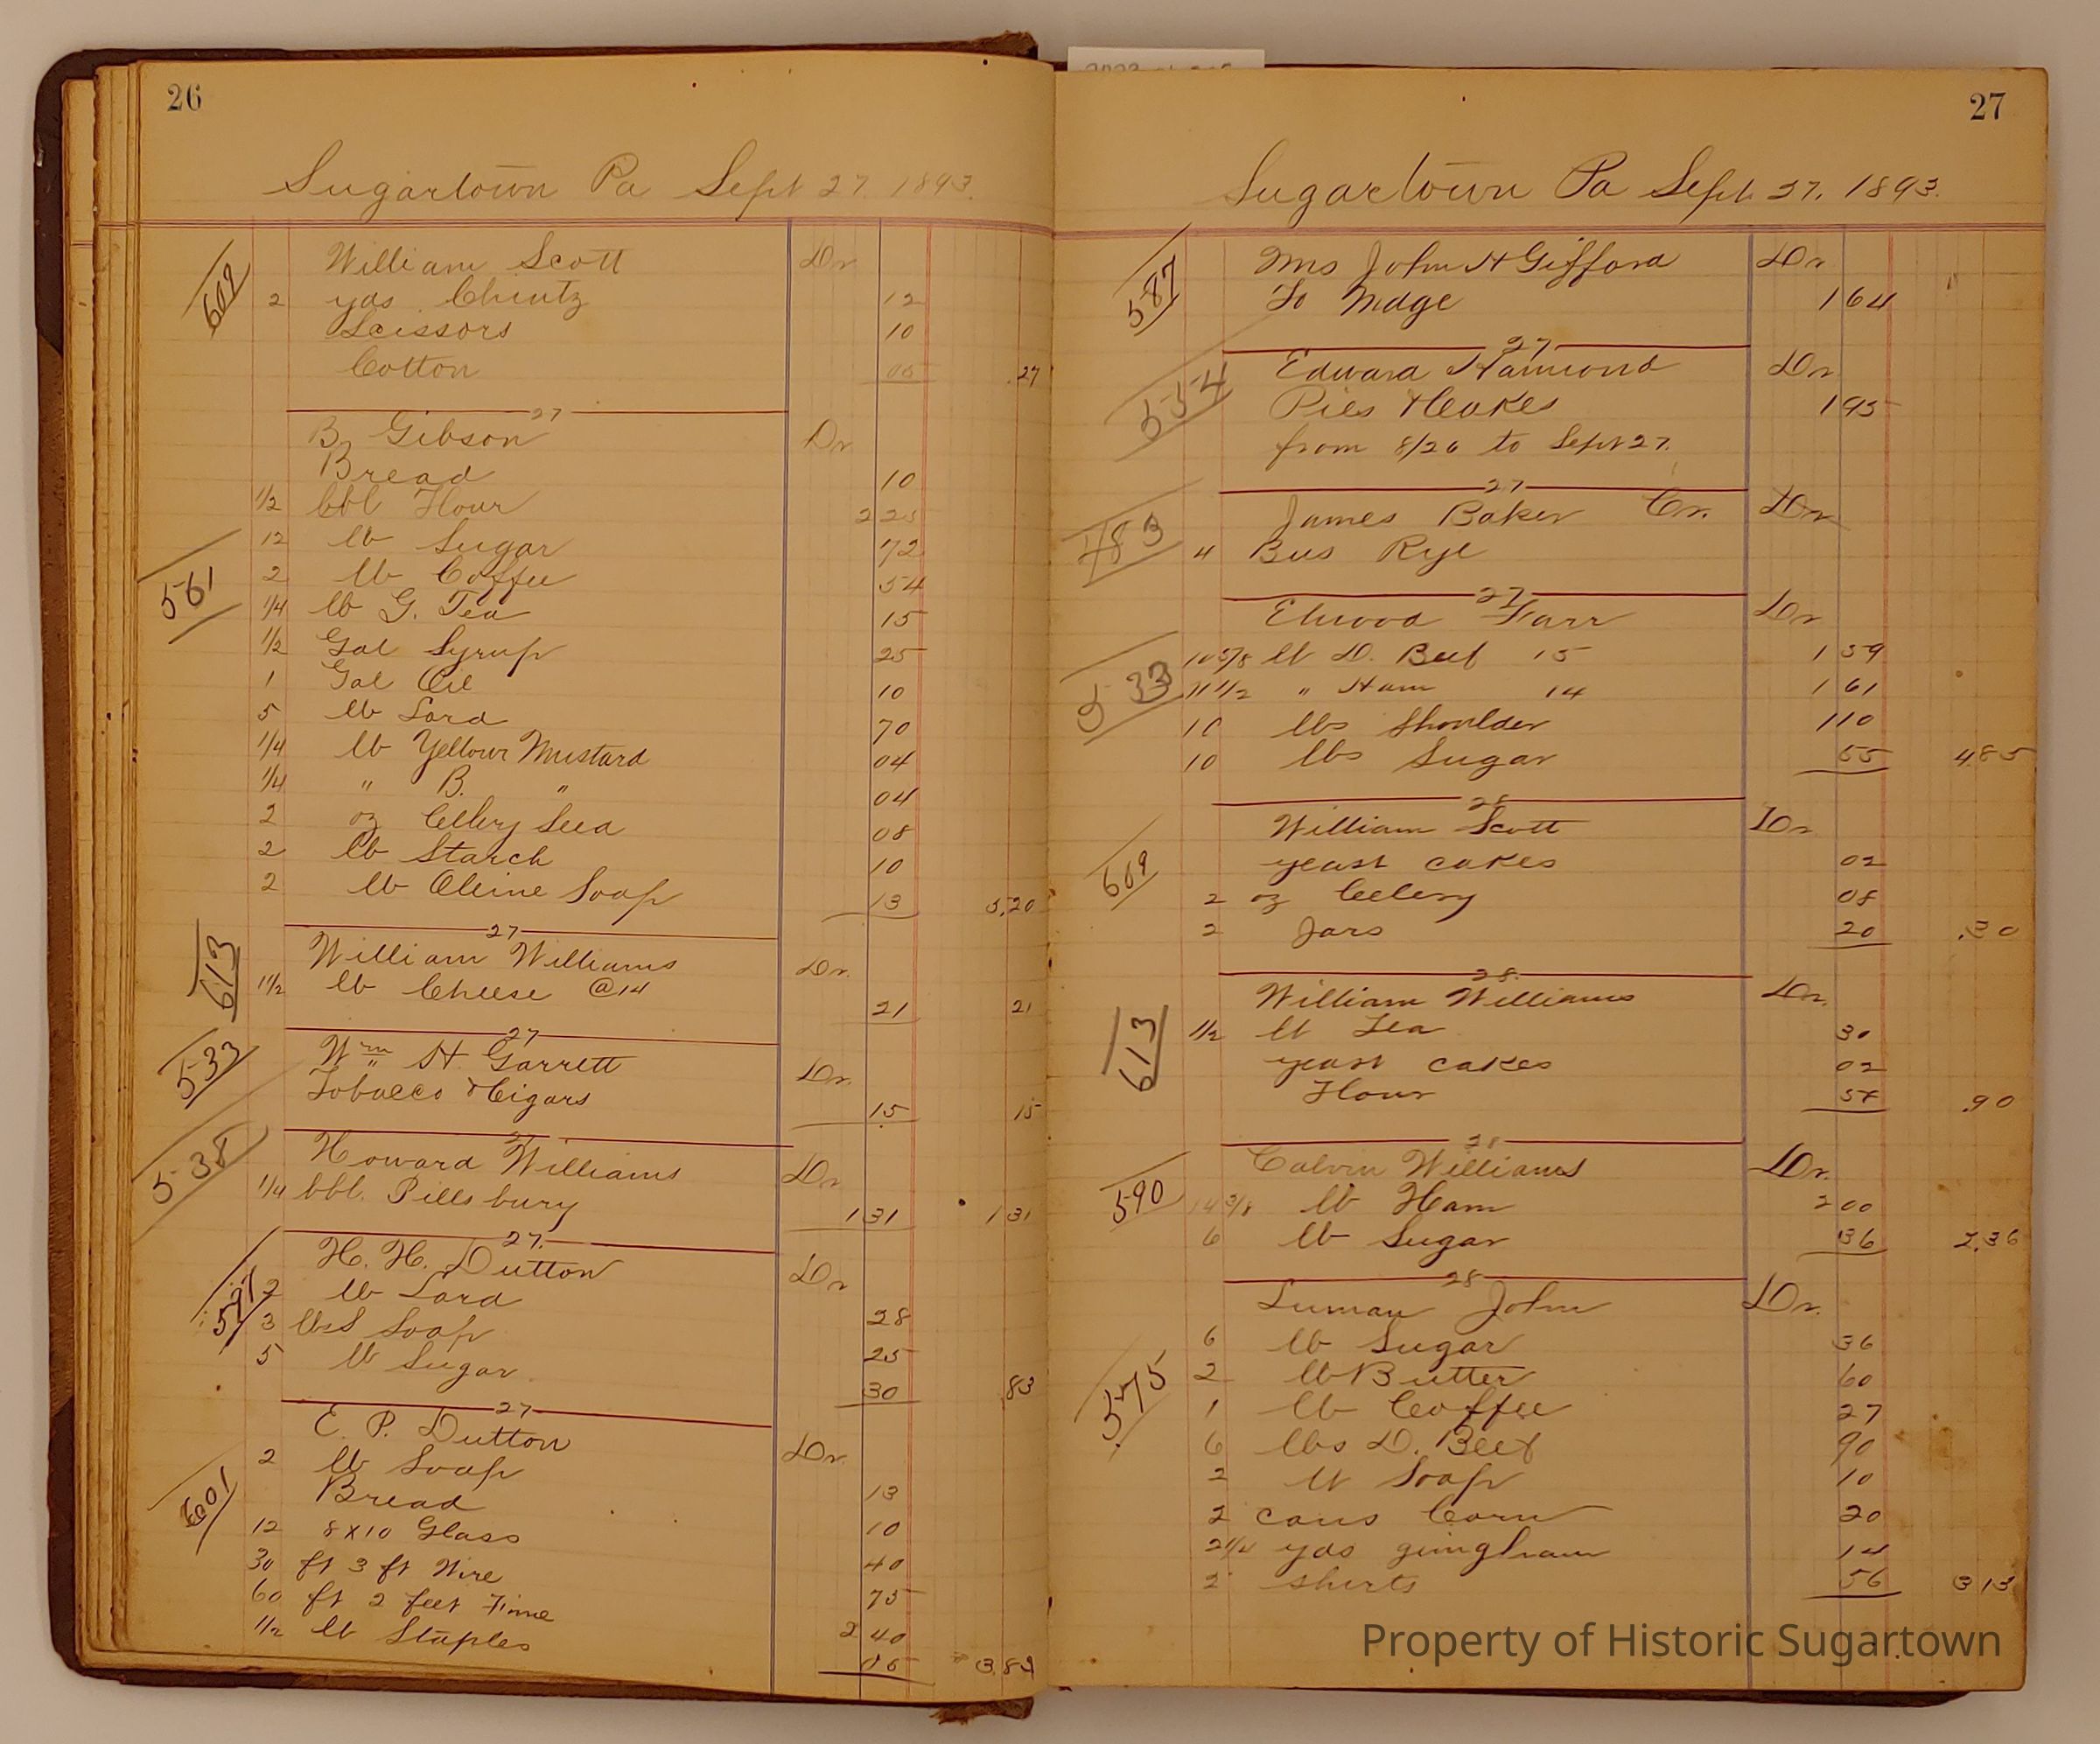 26
Sugartown Pa Sept 27. 1893.
602 William Scott Dr
2 yds Chintz 12
Scissors 10
Cotton 05 .27
27
B Gibson Dr
Bread 10
1/2 bbl Flour 2 25
12 lb Sugar 72
561 2 lb Coffee 54
1/4 lb G. Tea 15
1/2 Gal Syrup 25
1 Gal Oil 10
5 lb Lard 70
1/4 lb Yellow Mustard 04
1/4 " B. " 04
2 oz Cellery Seed 08
2 lb Starch 10
2 lb Oleine Soap 13 5.20
27
613 William Williams Dr.
1 1/2 lb Cheese @14 21 21
27
533 Wm H Garrett Dr.
Tobacco & Cigars 15 15
27
538 Howard Williams Dr
1/4 bbl. Pillsbury 1 31 1 31
27.
H. H. Dutton Dr
2 lb Lard 28
3 lbs Soap 25
5 lb Sugar 30 .83
27
E. P. Dutton Dr.
2 lb Soap 13
601 Bread 10
12 8x10 Glass 40
30 ft 3 ft Wire 75
60 ft 2 feet 2 40
1 1/2 lb Staples 06 3.82
27
Sugartown Pa Sept. 27. 1893.
587 Mrs John H Gifford Dr
To Mdge 1 64
27
534 Edward Hamond Dr.
Pies & Cakes 1 95
from 8/26 to Sept 27.
27
483 James Baker Cr. Dr
4 Bus Rye
27
Elwood Farr Dr
533 10 5/8 lb D. Beef 15 1 59
11 1/2 " Ham 14 1 61
10 lbs Shoulder 1 10
10 lbs Sugar 55 4.85
28
William Scott Dr
609 yeast cakes 02
2 oz Celery 08
2 Jars 20 .30
28.
William Williams Dr.
613 1 1/2 lb Tea 30
yeast cakes 02
Flour .90
28
Calvin Williams Dr.
590 14 3/8 lb Ham 2 00
6 lb Sugar 36 2.36
28
Luman John Dr.
6 lb Sugar 36
575 2 lb Butter 60
1 lb Coffee 27
6 lbs D. Beef 90
2 lb Soap 10
2 cans Corn 20
2 1/4 yds gingham 14
2 shirts 56 3 13
Property of Historic Sugartown